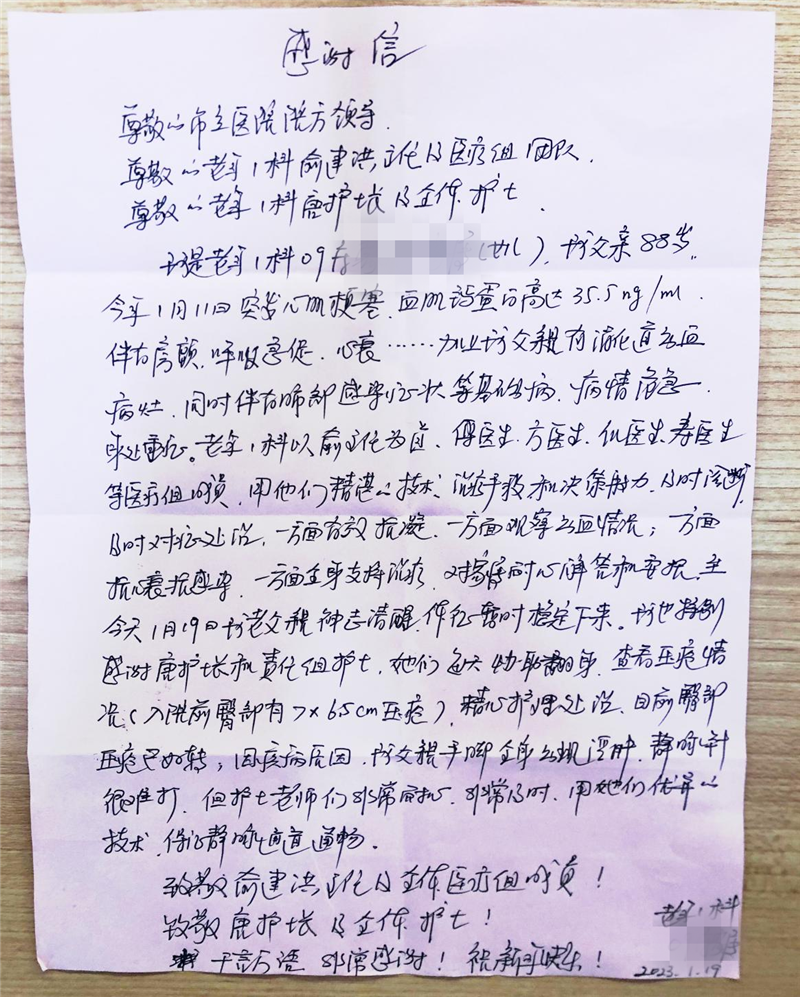 感谢信
尊敬的市立医院院方领导.
尊敬的老年1科俞建洪主任及医疗组团队.
尊敬的老年1科唐护士长及全体护士.
我是老年1科09床 (女儿), 我父亲88岁.
今年1月11日突发心肌梗塞, 血肌钙蛋白高达35.5ng/ml.
伴有房颤, 呼吸急促, 心衰……加上我父亲有消化道出血
病灶, 同时伴有肺部感染症状等基础病, 病情危急
身处重症。老年1科以俞主任为首, 傅医生、方医生、仇医生、寿医生
等医疗组成员, 用他们精湛的技术、治疗手段和决策能力, 及时诊断,
及时对症处治, 一方面有效抗凝, 一方面观察出血情况; 一方面
抗心衰抗感染, 一方面全身支持治疗, 对家属耐心解答和安抚, 至
今天1月19日我老父亲神志清醒, 体征暂时稳定下来。我也特别
感谢唐护士长和责任组护士, 她们每天协助翻身, 查看压疮情
况(入院前臀部有7×6.5cm压疮), 精心护理处治, 目前臀部
压疮已好转; 因疾病原因, 我父亲手脚全身出现浮肿, 静脉针
很难打, 但护士老师们非常耐心, 非常及时, 用她们优异的
技术, 保证静脉通道通畅.
致敬俞建洪主任及全体医疗组成员!
致敬唐护士长及全体护士!
千言万语 非常感谢! 祝新年快乐!
老年1科
2023.1.19